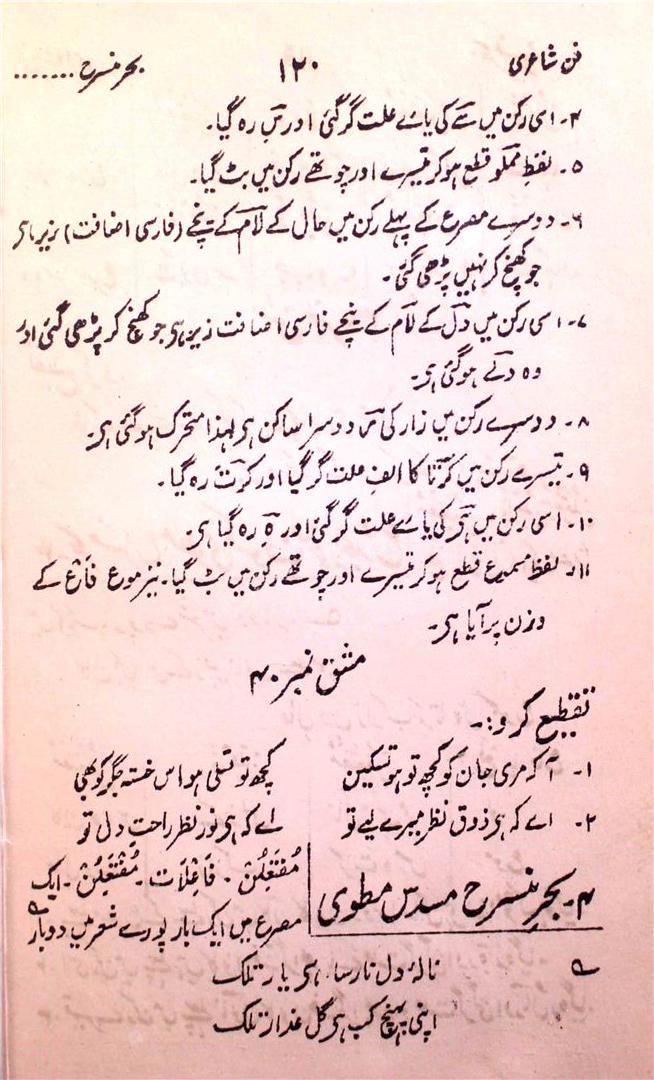 فن شاعری ۱۲۰ بحر منسرح .......
۴۔ اسی رکن میں سے کی یائے علت گر گئی اور سِ رہ گیا۔
۵۔ لفظ مملو قطع ہو کر تیسرے اور چوتھے رکن میں بٹ گیا۔
۶۔ دوسرے مصرع کے پہلے رکن میں حال کے لآم کے نیچے (فارسی اضافت) زیر ہی
جو کھینچ کر نہیں پڑھی گئی۔
۷۔ اسی رکن میں دل کے لآم کے نیچے فارسی اضافت زیر ہی جو کھینچ کر پڑھی گئی اور
وہ دلے ہو گئی ہی۔
۸۔ دوسرے رکن میں زار کی دوسرا ساکن ہی لہذا متحرک ہو گئی ہی۔
۹۔ تیسرے رکن میں کرتا کا الف علت گر گیا اور کرت رہ گیا۔
۱۰۔ اسی رکن میں ہی کی یائے علت گر گئی اور ہِ رہ گیا ہی۔
۱۱۔ لفظ مسموع قطع ہو کر تیسرے اور چوتھے رکن میں بٹ گیا۔ نیز موع فاع کے
وزن پر آیا ہی۔
مشق نمبر ۴۰
تقطیع کرو:۔
۱۔ آ کہ مری جان کو کچھ تو ہو تسکین کچھ تو تسلی ہو اس خستہ جگر کو بھی
۲۔ اے کہ ہی ذوق نظر میرے لیے تو اے کہ ہی نور نظر راحتِ دل تو
۴۔ بحر منسرح مسدس مطوی مُفْتَعِلُنْ ۔ فَاعِلَاتُ ۔ مُفْتَعِلُنْ ۔ ایک
مصرع میں ایک بار پورے شعر میں دوبار
نالۂ دل نارسا ہی یار تلک
اپنی پہنچ کب ہی گل عذار تلک